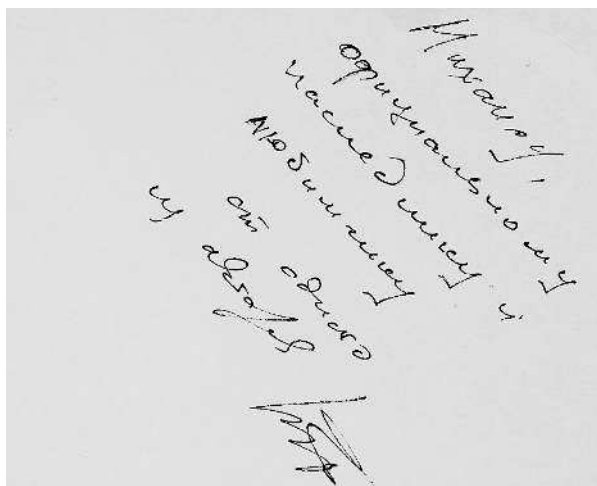 Михаилу,
официальному
наследнику и
любимчику
от одного
из авторов